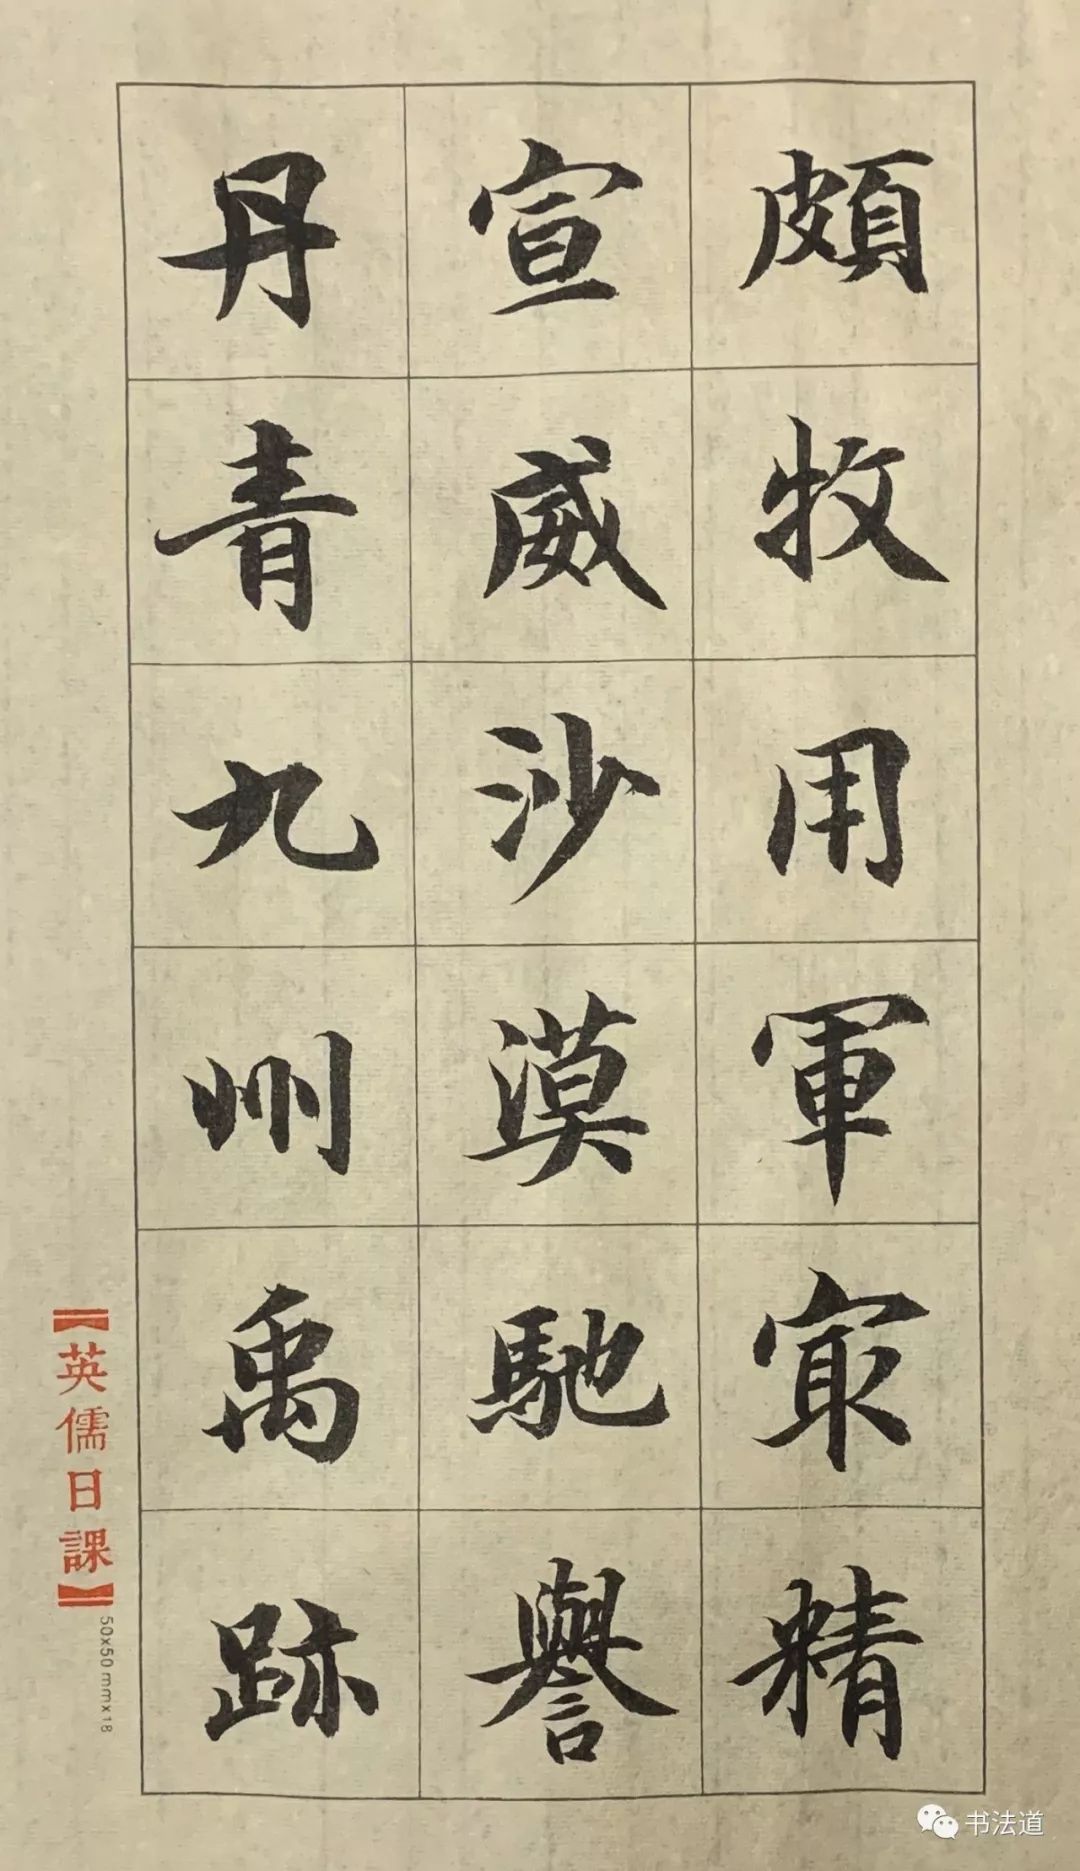 頗牧用軍冣精
宣威沙漠馳譽
丹青九州禹跡
【英儒日課】
50x50mmx18
书法道